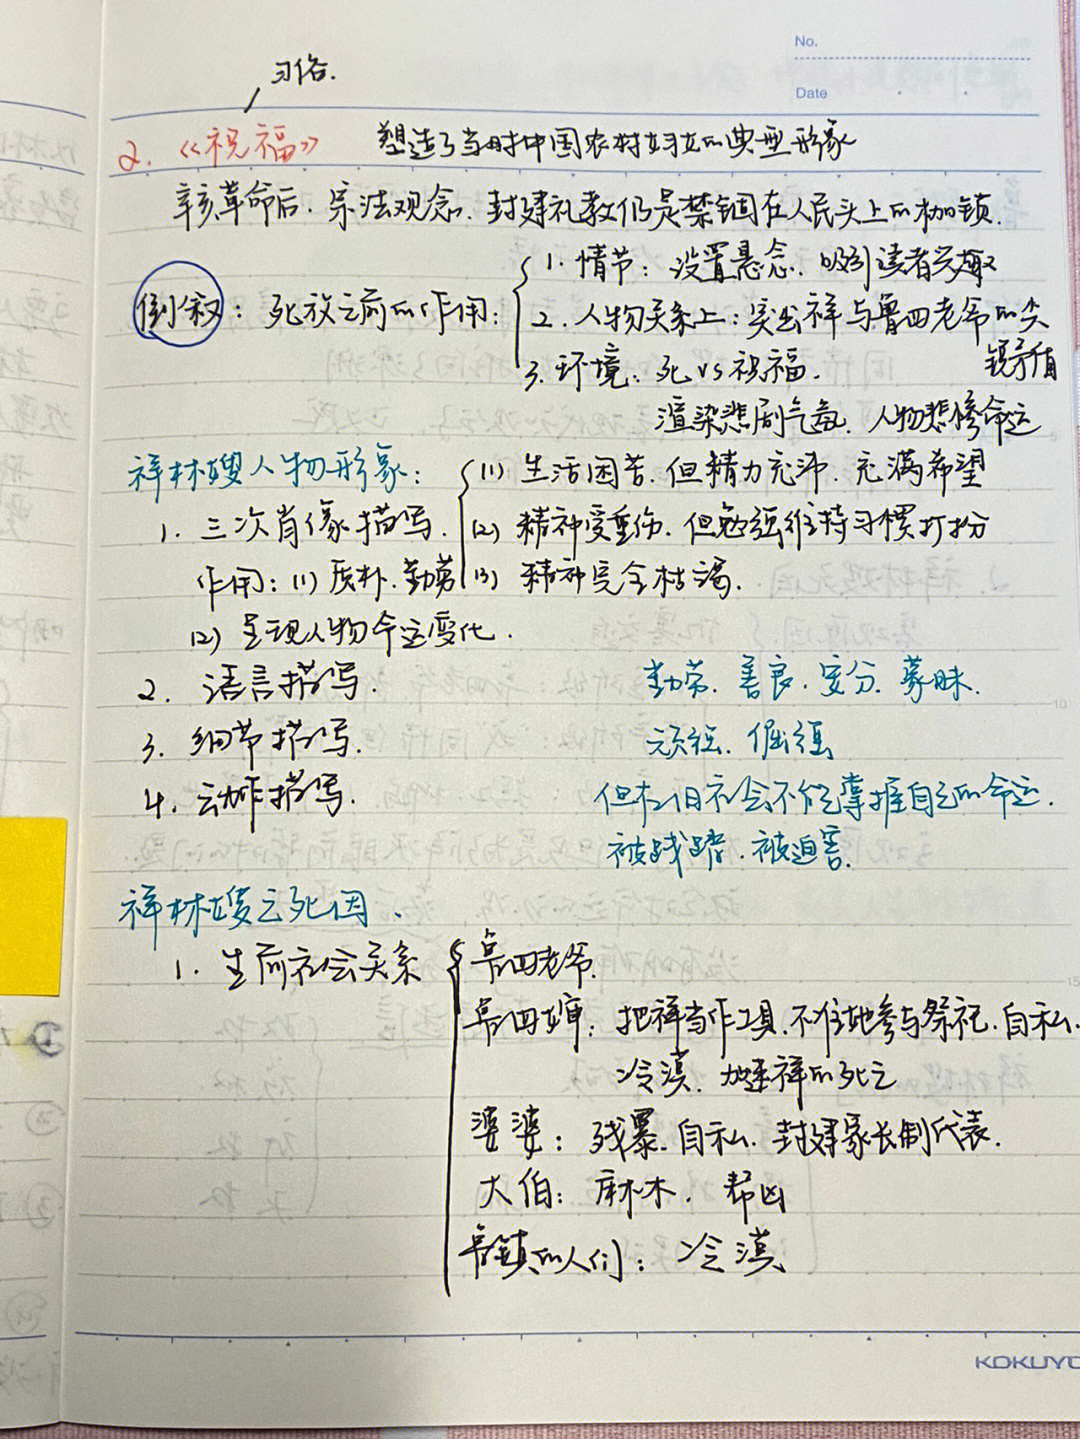 No.
习俗.
Date
2.《祝福》 塑造了当时中国农村妇女的典型形象
辛亥革命后.宗法观念.封建礼教仍是禁锢在人民头上的枷锁.
倒叙:死放之前的作用:
1.情节:设置悬念.吸引读者兴趣
2.人物关系上:突出祥与鲁四老爷的尖
锐矛盾
3.环境:死vs祝福.
渲染悲剧气氛.人物悲惨命运
祥林嫂人物形象:
1.三次肖像描写.
(1)生活困苦.但精力充沛.充满希望
(2)精神受重伤.但勉强维持习惯打扮
(3)精神完全枯渴.
作用:(1)质朴.勤劳
(2)呈现人物命运变化.
2.语言描写.
3.细节描写.
4.动作描写.
勤劳.善良.安分.蒙昧.
顽强.倔强
但在旧社会不能掌握自己的命运.
被践踏.被迫害.
祥林嫂之死因.
1.生前社会关系
鲁四老爷.
鲁四婶:把祥当作工具.不准她参与祭祀.自私.
冷漠.加速祥的死亡
婆婆:残暴.自私.封建家长制代表.
大伯:麻木.帮凶
鲁镇的人们:冷漠
KOKUYO